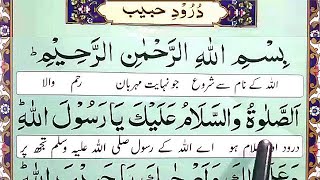 درودِ حبیب
بِسْمِ اللهِ الرَّحْمٰنِ الرَّحِيْمِ ؕ
اللہ کے نام سے شروع جو نہایت مہربان رحم والا
اَلصَّلٰوةُ وَالسَّلَامُ عَلَيْكَ يَا رَسُوْلَ اللهِ ؕ
درود ہو اے اللہ کے رسول صلی اللہ علیہ وسلم تجھ پر